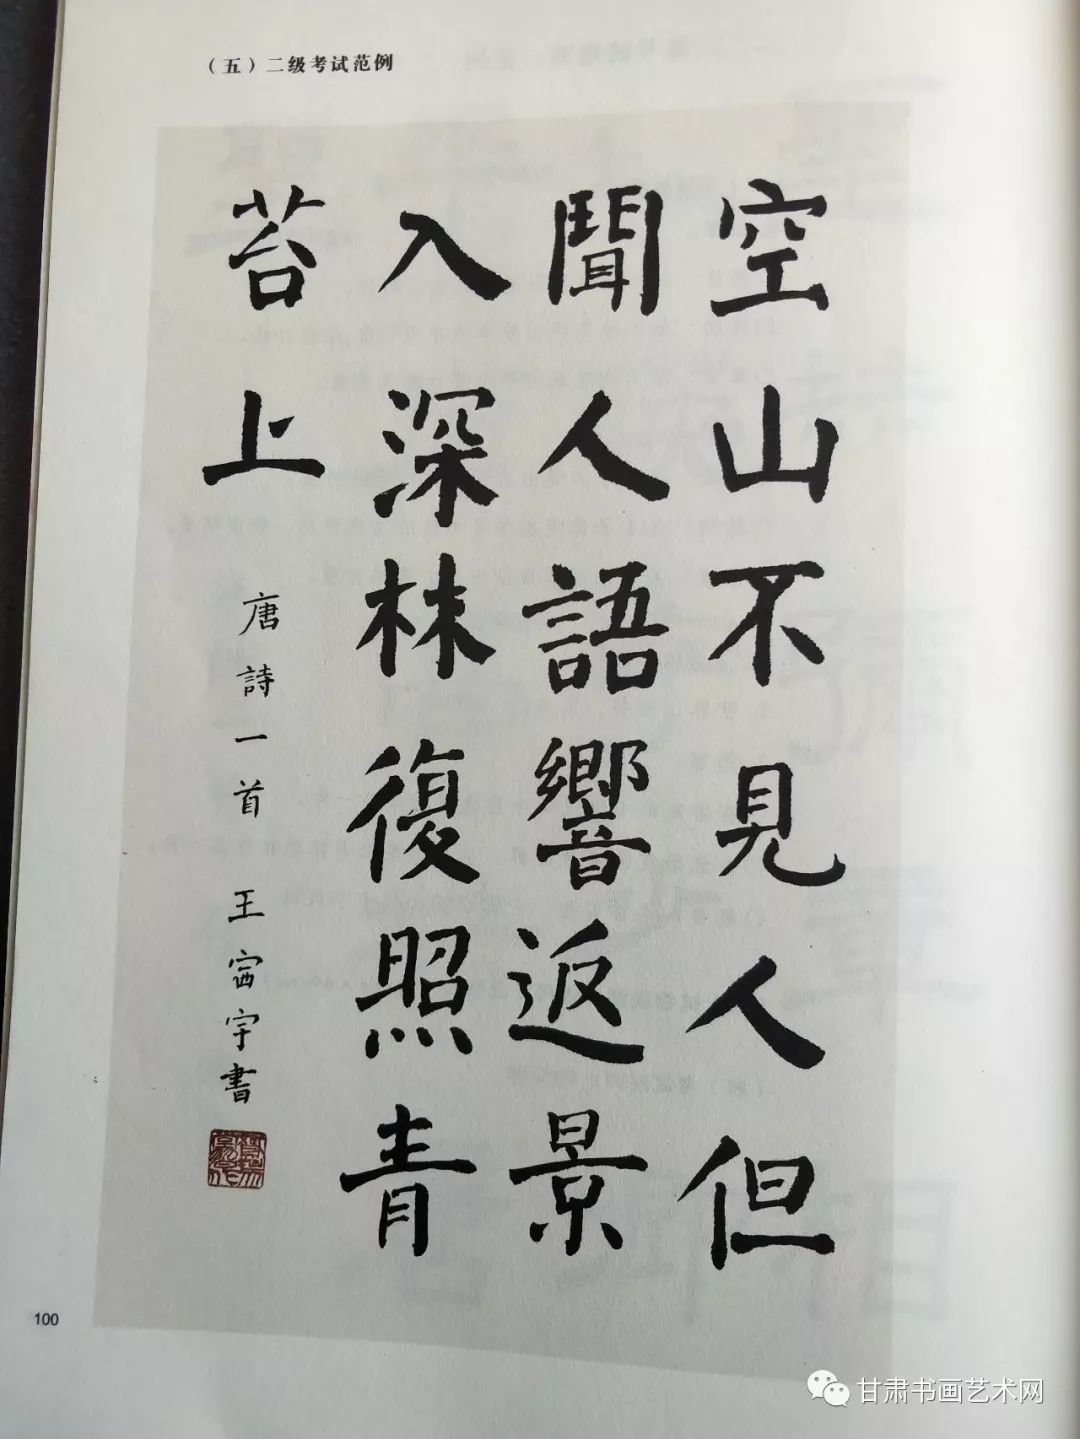 （五）二级考试范例
空山不見人但
聞人語響返景
入深林復照青
苔上
唐詩一首 王宇書
100
甘肃书画艺术网